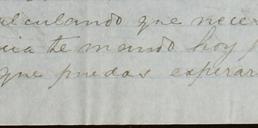 alculando que neces
cia te mando hoy
que puedas esperar